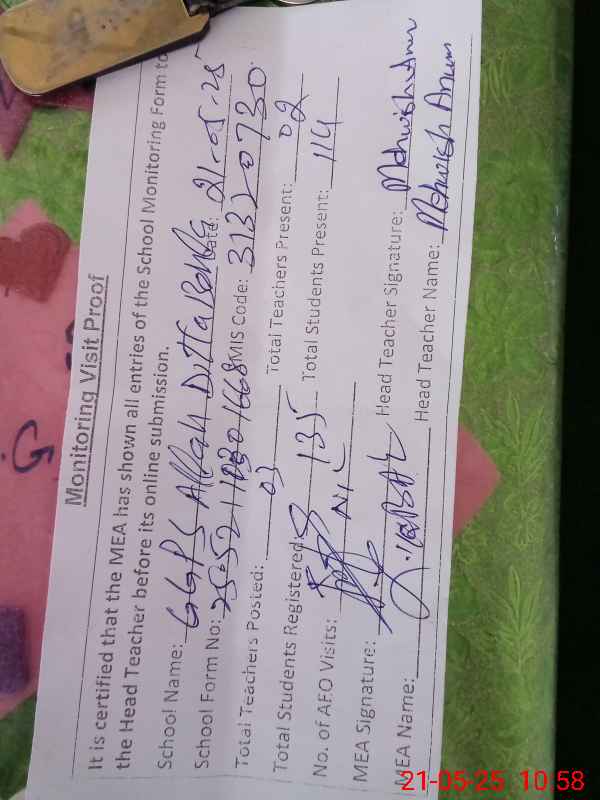 Monitoring Visit Proof
It is certified that the MEA has shown all entries of the School Monitoring Form to
the Head Teacher before its online submission.
School Name: GGPS Allah Ditta Date: 21-05-25
School Form No: EMIS Code: 31320730
Total Teachers Posted: 03 Total Teachers Present: 02
Total Students Registered: 135 Total Students Present: 114
No. of AEO Visits: NIL
MEA Signature: Head Teacher Signature: Mehwish Anum
MEA Name: Head Teacher Name: Mehwish Anum
G
21-05-25 10:58